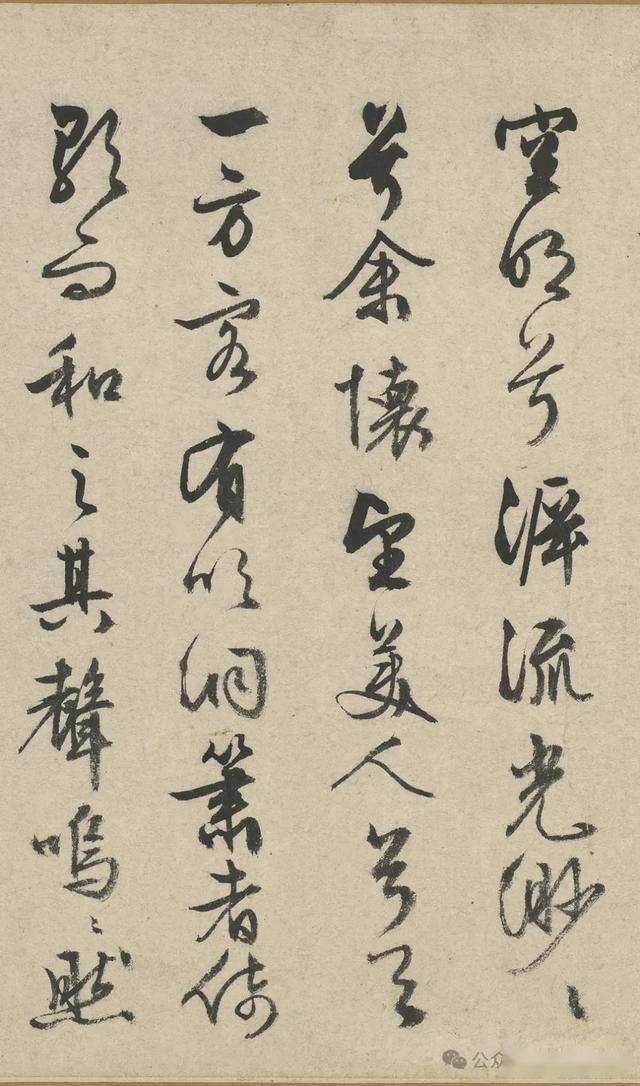 空明兮泝流光渺〻
兮余懷望美人兮天
一方客有吹洞簫者倚
歌而和之其聲嗚〻然
公众